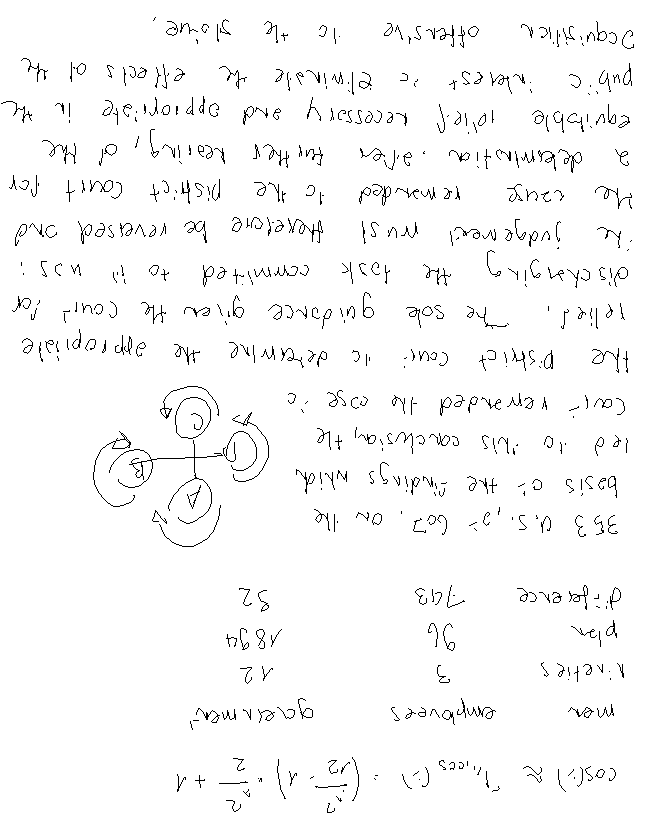 cos(i) ≈ (x²/12 - 1) · x²/2 + 1
men employees government
nineties 3 12
plan 96 1894
difference 743 32
353 U.S., at 607. on the
basis of the findings which
led to this conclusion, the
Court remanded the case to
A
B
D
C
the District Court to determine the appropriate
relief. The sole guidance given the Court for
discharging the task committed to it was:
the judgement must therefore be reversed and
the cause remanded to the District Court for
a determination, after further hearing, of the
equitable relief necessary and appropriate in the
public interest to eliminate the effects of the
acquisition offensive to the statue.